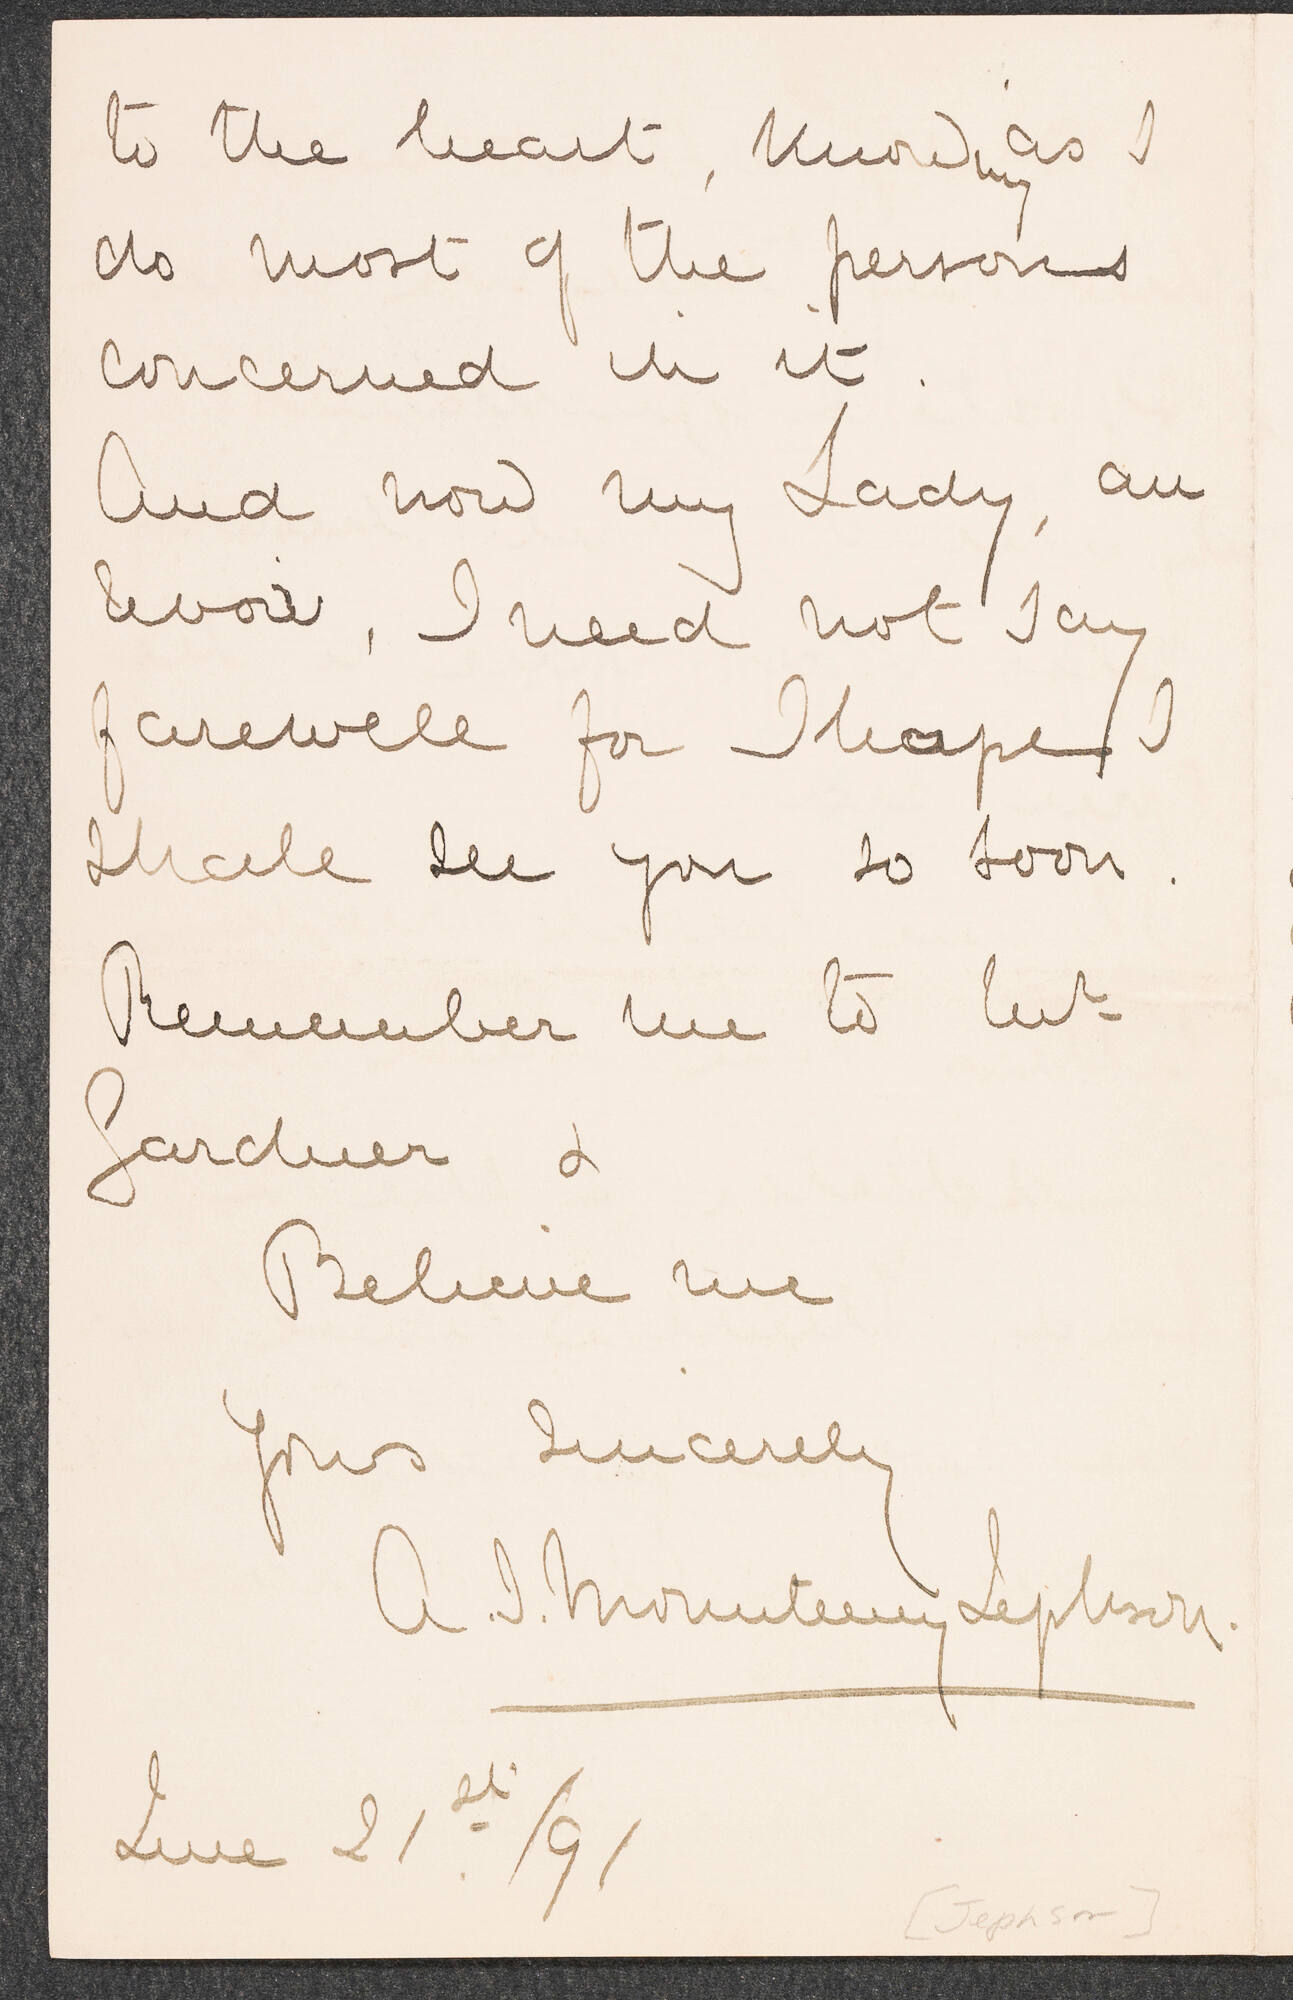 to the heart, knowing as I
do most of the persons
concerned in it.
And now my Lady, au
revoir, I need not say
farewell for I hope I
shall see you so soon.
Remember me to
Gardner &
Believe me
Yours sincerely
A. J. Mounteney Jephson.
June 21st /91
[Jephson]